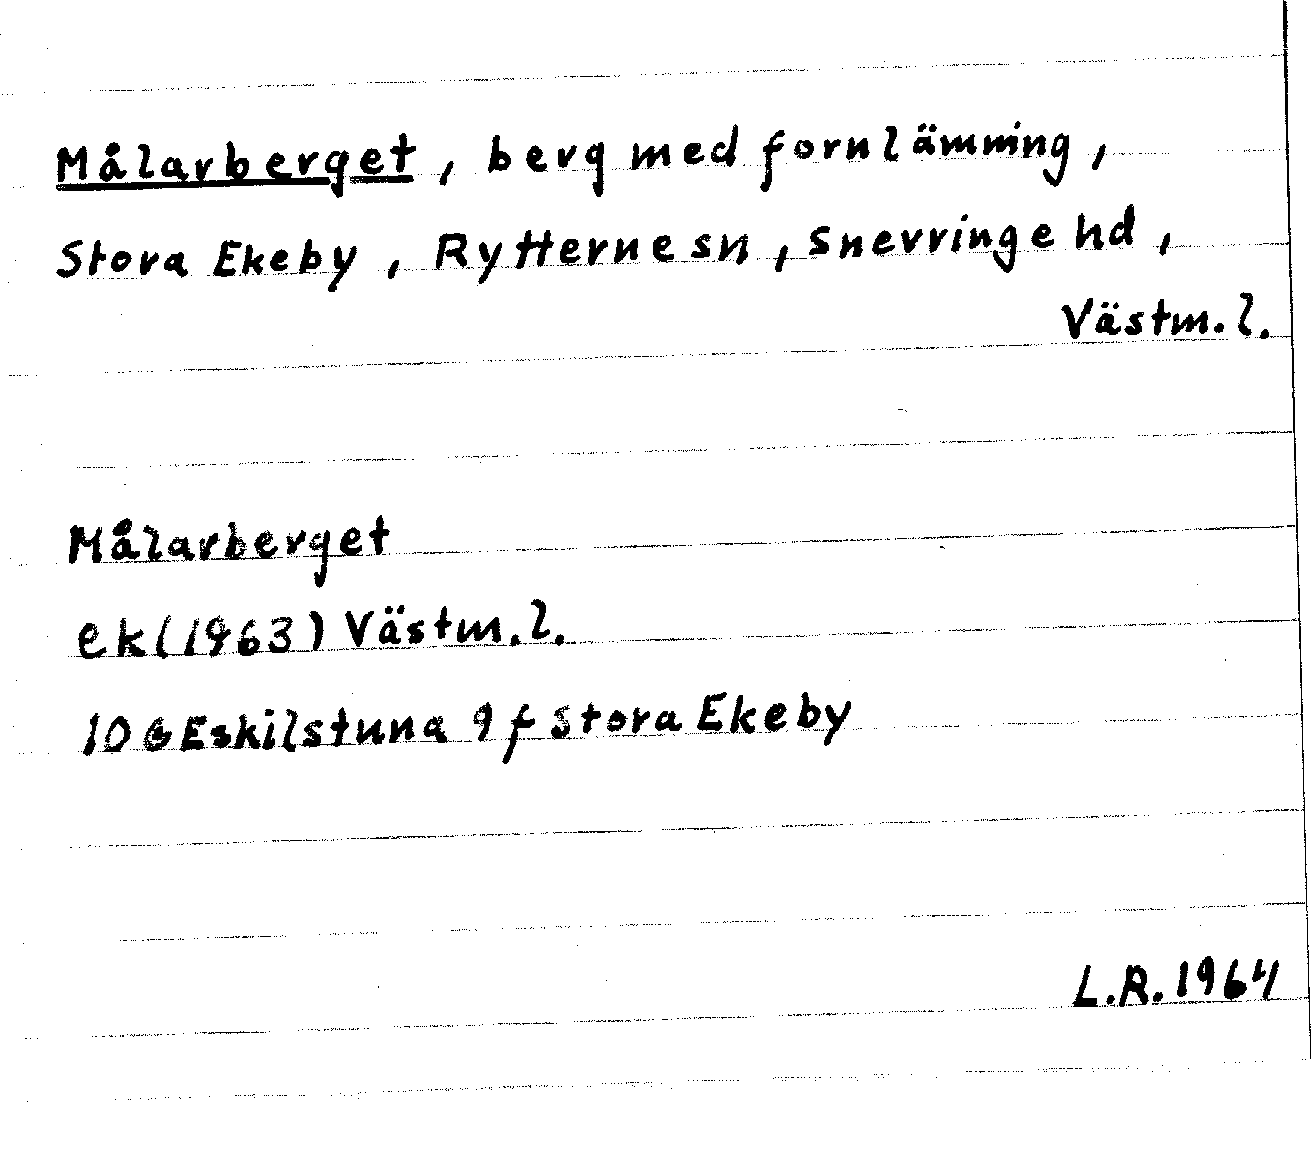 Målarberget, berg med fornlämming,
Stora Ekeby, Rytterne sn, Snevringe hd,
Västm. l.
Målarberget
ek (1963) Västm. l.
10 G Eskilstuna 9 f Stora Ekeby
L.R. 1964